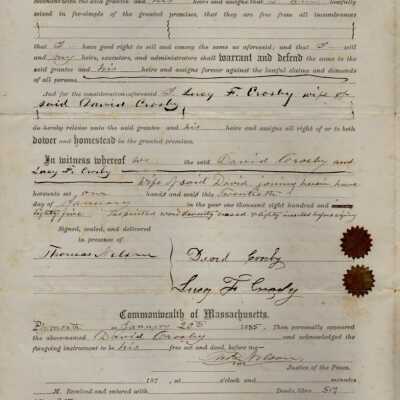 covenant with the said grantee and his heirs and assigns that I am lawfully
seized in fee-simple of the granted premises, that they are free from all incumbrances
that I have good right to sell and convey the same as aforesaid; and that I will
and my heirs, executors, and administrators shall warrant and defend the same to the
said grantee and his heirs and assigns forever against the lawful claims and demands
of all persons
And for the consideration aforesaid I, Lucy F. Crosby wife of
said David Crosby
do hereby release unto the said grantee and his heirs and assigns all right of or to both
dower and homestead in the granted premises.
In witness whereof we the said David Crosby and
Lucy F. Crosby
wife of said David joining herein have
hereunto set our hands and seals this twentieth
day of January in the year one thousand eight hundred and
Eighty five word seventy erased & eighty inserted before signing
Signed, sealed, and delivered
in presence of
Thomas Nelson
David Crosby
Lucy F Crosby
Commonwealth of Massachusetts.
Plymouth January 20th 1885. Then personally appeared
the above-named David Crosby and acknowledged the
foregoing instrument to be his free act and deed, before me,
Nelson
Justice of the Peace.
187 , at o'clock and minutes
M. Received and entered with Deeds, libro 517